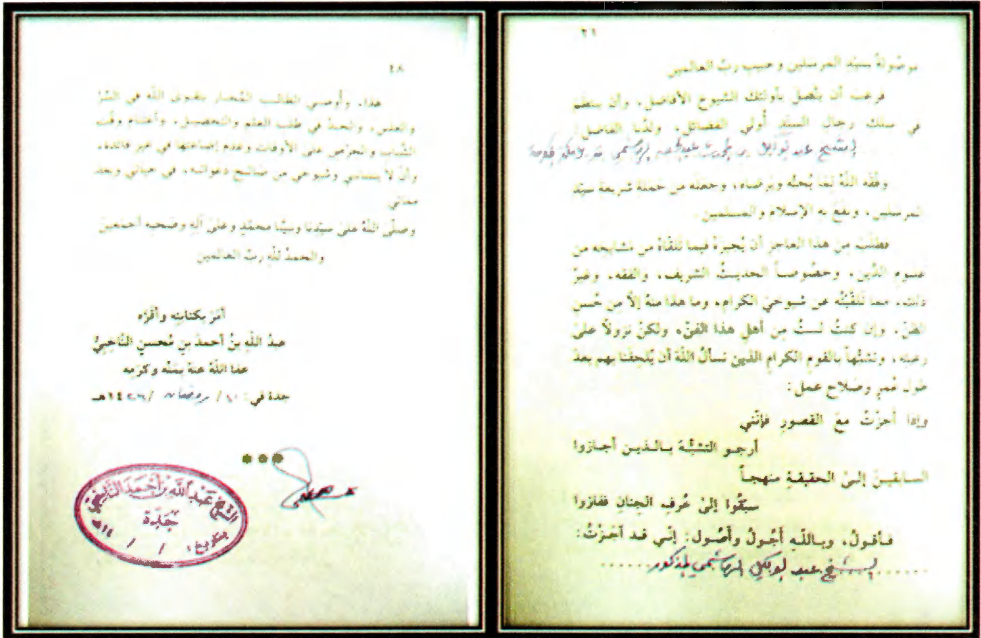 ٢٦
موصولة بسيّد المرسلين وحبيب ربّ العالمين
فرغبَ أن يتَّصل بأولئك الشيوخ الأفاضل، وأن ينتظم
في سلك رجال السند أُولي الفضائل، ولدُنا الفاضل:
الشيخ عبد الوكيل بن الهاشمي
وفَّقه اللهُ لما يُحبُّه ويرضاه، وجعله من حَمَلة شريعة سيّد
المرسلين، ونفع به الإسلام والمسلمين.
فطلبَ مِن هذا العاجز أن يُجيزهُ فيما تلقَّاهُ من مشايخه من
علوم الدِّين، وخصُوصاً الحديثُ الشريف، والفقه، وغيرُ
ذلك، مما تلقَّيتُه عن شيوخيَ الكرام، وما هذا منهُ إلاَّ مِن حُسن
الظنّ، وإن كنتُ لستُ مِن أهلِ هذا الفنّ، ولكن نزولاً على
رغبته، وتشبُّهاً بالقوم الكرام الذين نسألُ اللهَ أن يُلحِقنا بهم بعدَ
طول عُمرٍ وصلاح عمل:
وإذا أجزْتُ معَ القصورِ فإنَّني
أرجو التشبُّهَ بالذين أجازوا
السابقينَ إلى الحقيقةِ منهجاً
سبَقُوا إلى غُرفِ الجنانِ ففازوا
فأقولُ، وباللهِ أجُولُ وأصُول: إنّي قد أجَزْتُ:
الشيخ عبد الوكيل الهاشمي المذكور
٤٨
هذا، وأُوصي الطالب المُجاز بتقوى الله في السِّرّ
والعلَن، والجدّ في طلب العلم والتحصيل، واغتنام وقت
الشَّباب والحرْص على الأوقات وعدم إضاعتها في غير فائدة،
وأنْ لاَ ينساني وشيوخي من صالح دعواته، في حياتي وبعد
مماتي
وصلَّى اللهُ على سيّدنا ونبيّنا محمَّدٍ وعلى آلِهِ وصَحبه أجمعين
والحمدُ للهِ ربِّ العالمين
أمَرَ بكتابتِه وأقرَّه
عبدُ اللهِ بنُ أحمدَ بنِ مُحسنٍ النَّاخِبيُّ
عفا اللهُ عنهُ بمنِّه وكرَمِه
جدة في: / رمضان /١٤٢٦هـ
الشيخ عبد الله بن أحمد الناخبي
جدة
بتاريخ: / / ١٤هـ